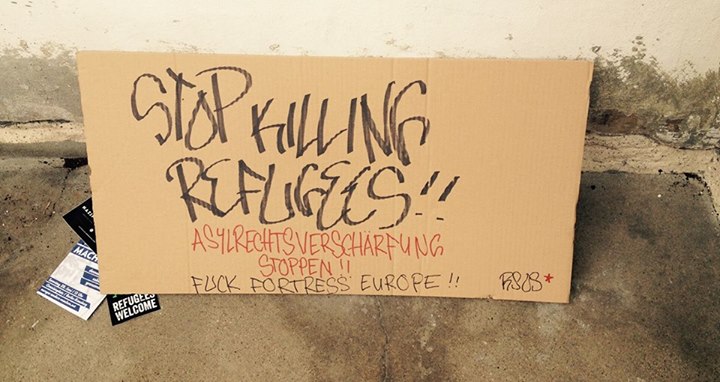 STOP KILLING
REFUGEES!!
ASYLRECHTSVERSCHÄRFUNG
STOPPEN!!
FUCK FORTRESS EUROPE!!
REFUGEES
WELCOME